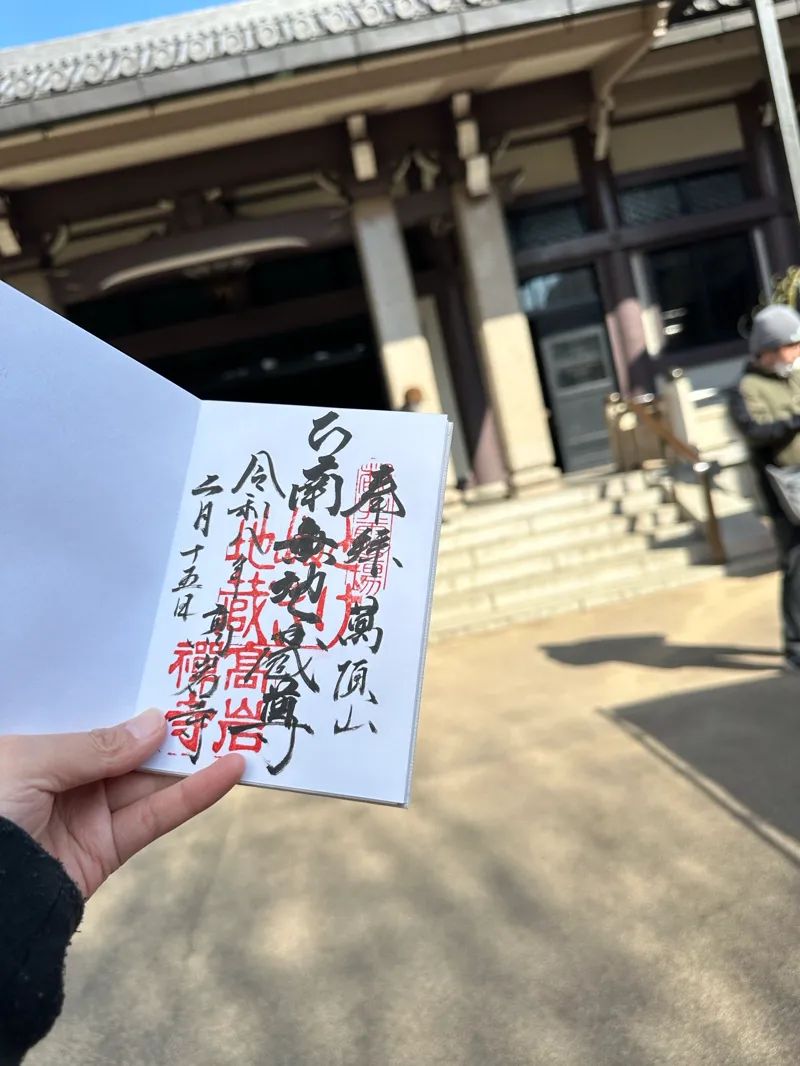 奉拝
萬頂山
南無地蔵尊
令和八年
二月十五日
高岩寺
地蔵
高岩
禅寺